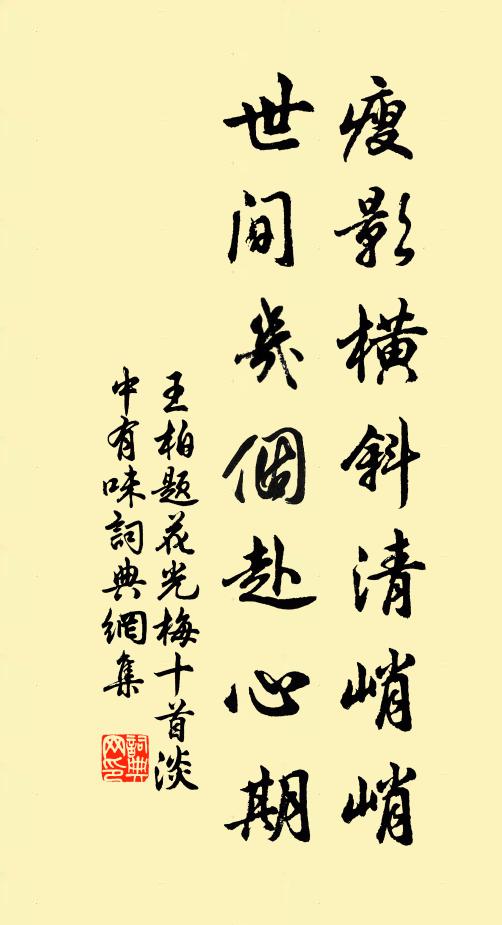 瘦影橫斜清峭峭
世间幾個赴心期
王柏题花光梅十首淡
中有味詞典網集
詞典網印